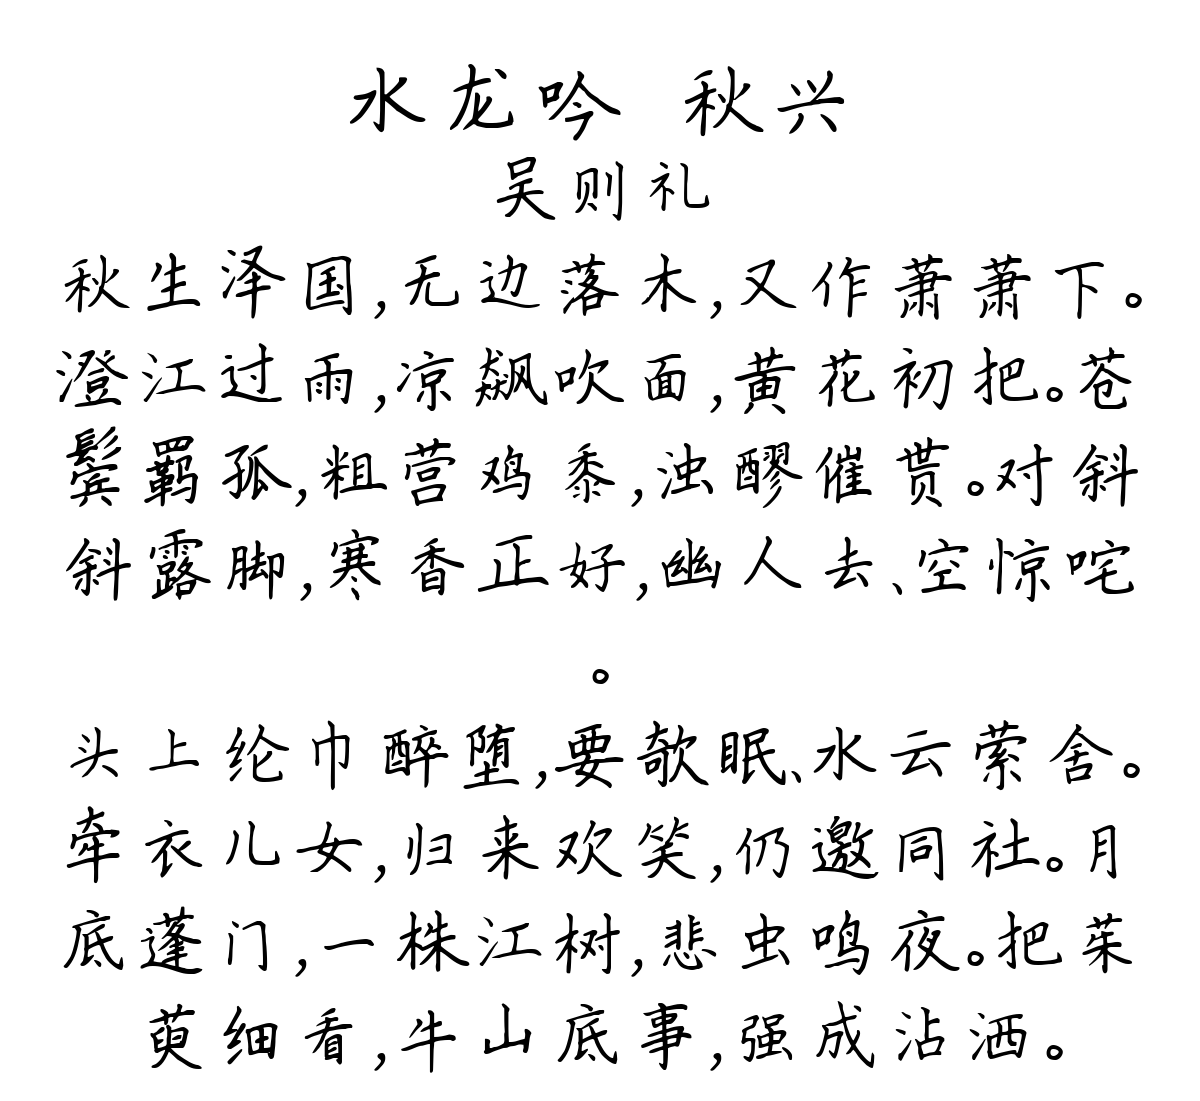 水龙吟 秋兴
吴则礼
秋生泽国,无边落木,又作萧萧下。
澄江过雨,凉飙吹面,黄花初把。苍
鬓羁孤,粗营鸡黍,浊醪催贳。对斜
斜露脚,寒香正好,幽人去、空惊咤
。
头上纶巾醉堕,要欹眠、水云萦舍。
牵衣儿女,归来欢笑,仍邀同社。月
底蓬门,一株江树,悲虫鸣夜。把茱
萸细看,牛山底事,强成沾洒。